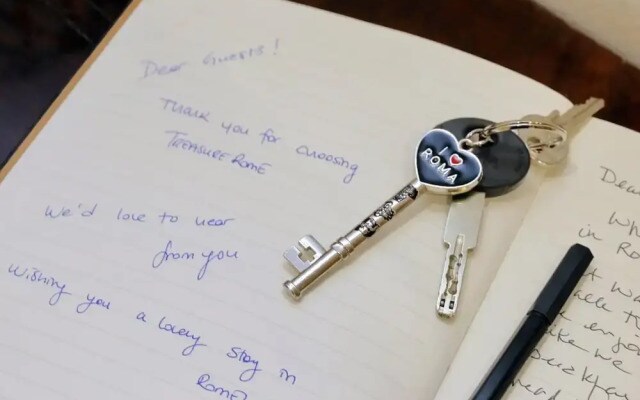 Dear Guests!
Thank you for choosing
TREASURE ROME
We'd love to hear
from you
Wishing you a lovely stay in
ROME!
I ♥
ROMA
Dea
Wh
in Ro
A w
to
enjo
we